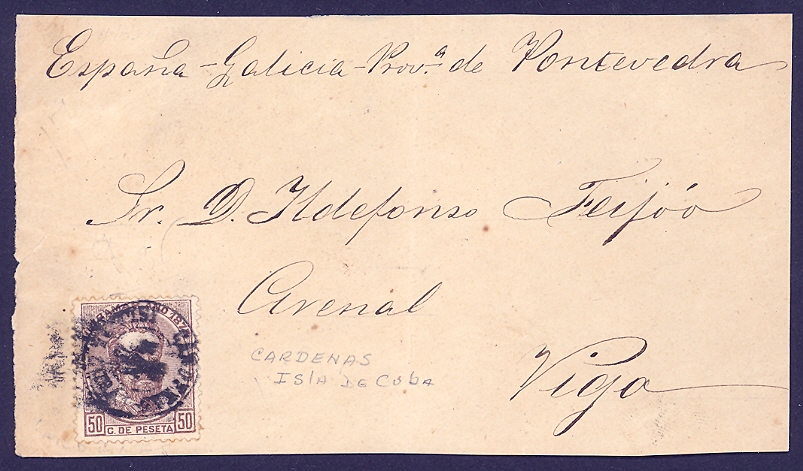 España-Galicia-Prov.ª de Pontevedra
Sr. D. Ildefonso Feijóo
Arenal
Vigo
CARDENAS
ISLA DE CUBA
50 C. DE PESETA 50